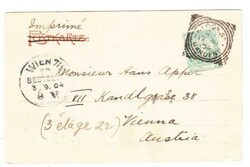 Imprimé
POSTKARTE
WIEN
BEST
3. 9. 04
Monsieur Hans Appel
XII Kandlgasse 38
(3 étage 22)
Vienna
Austria